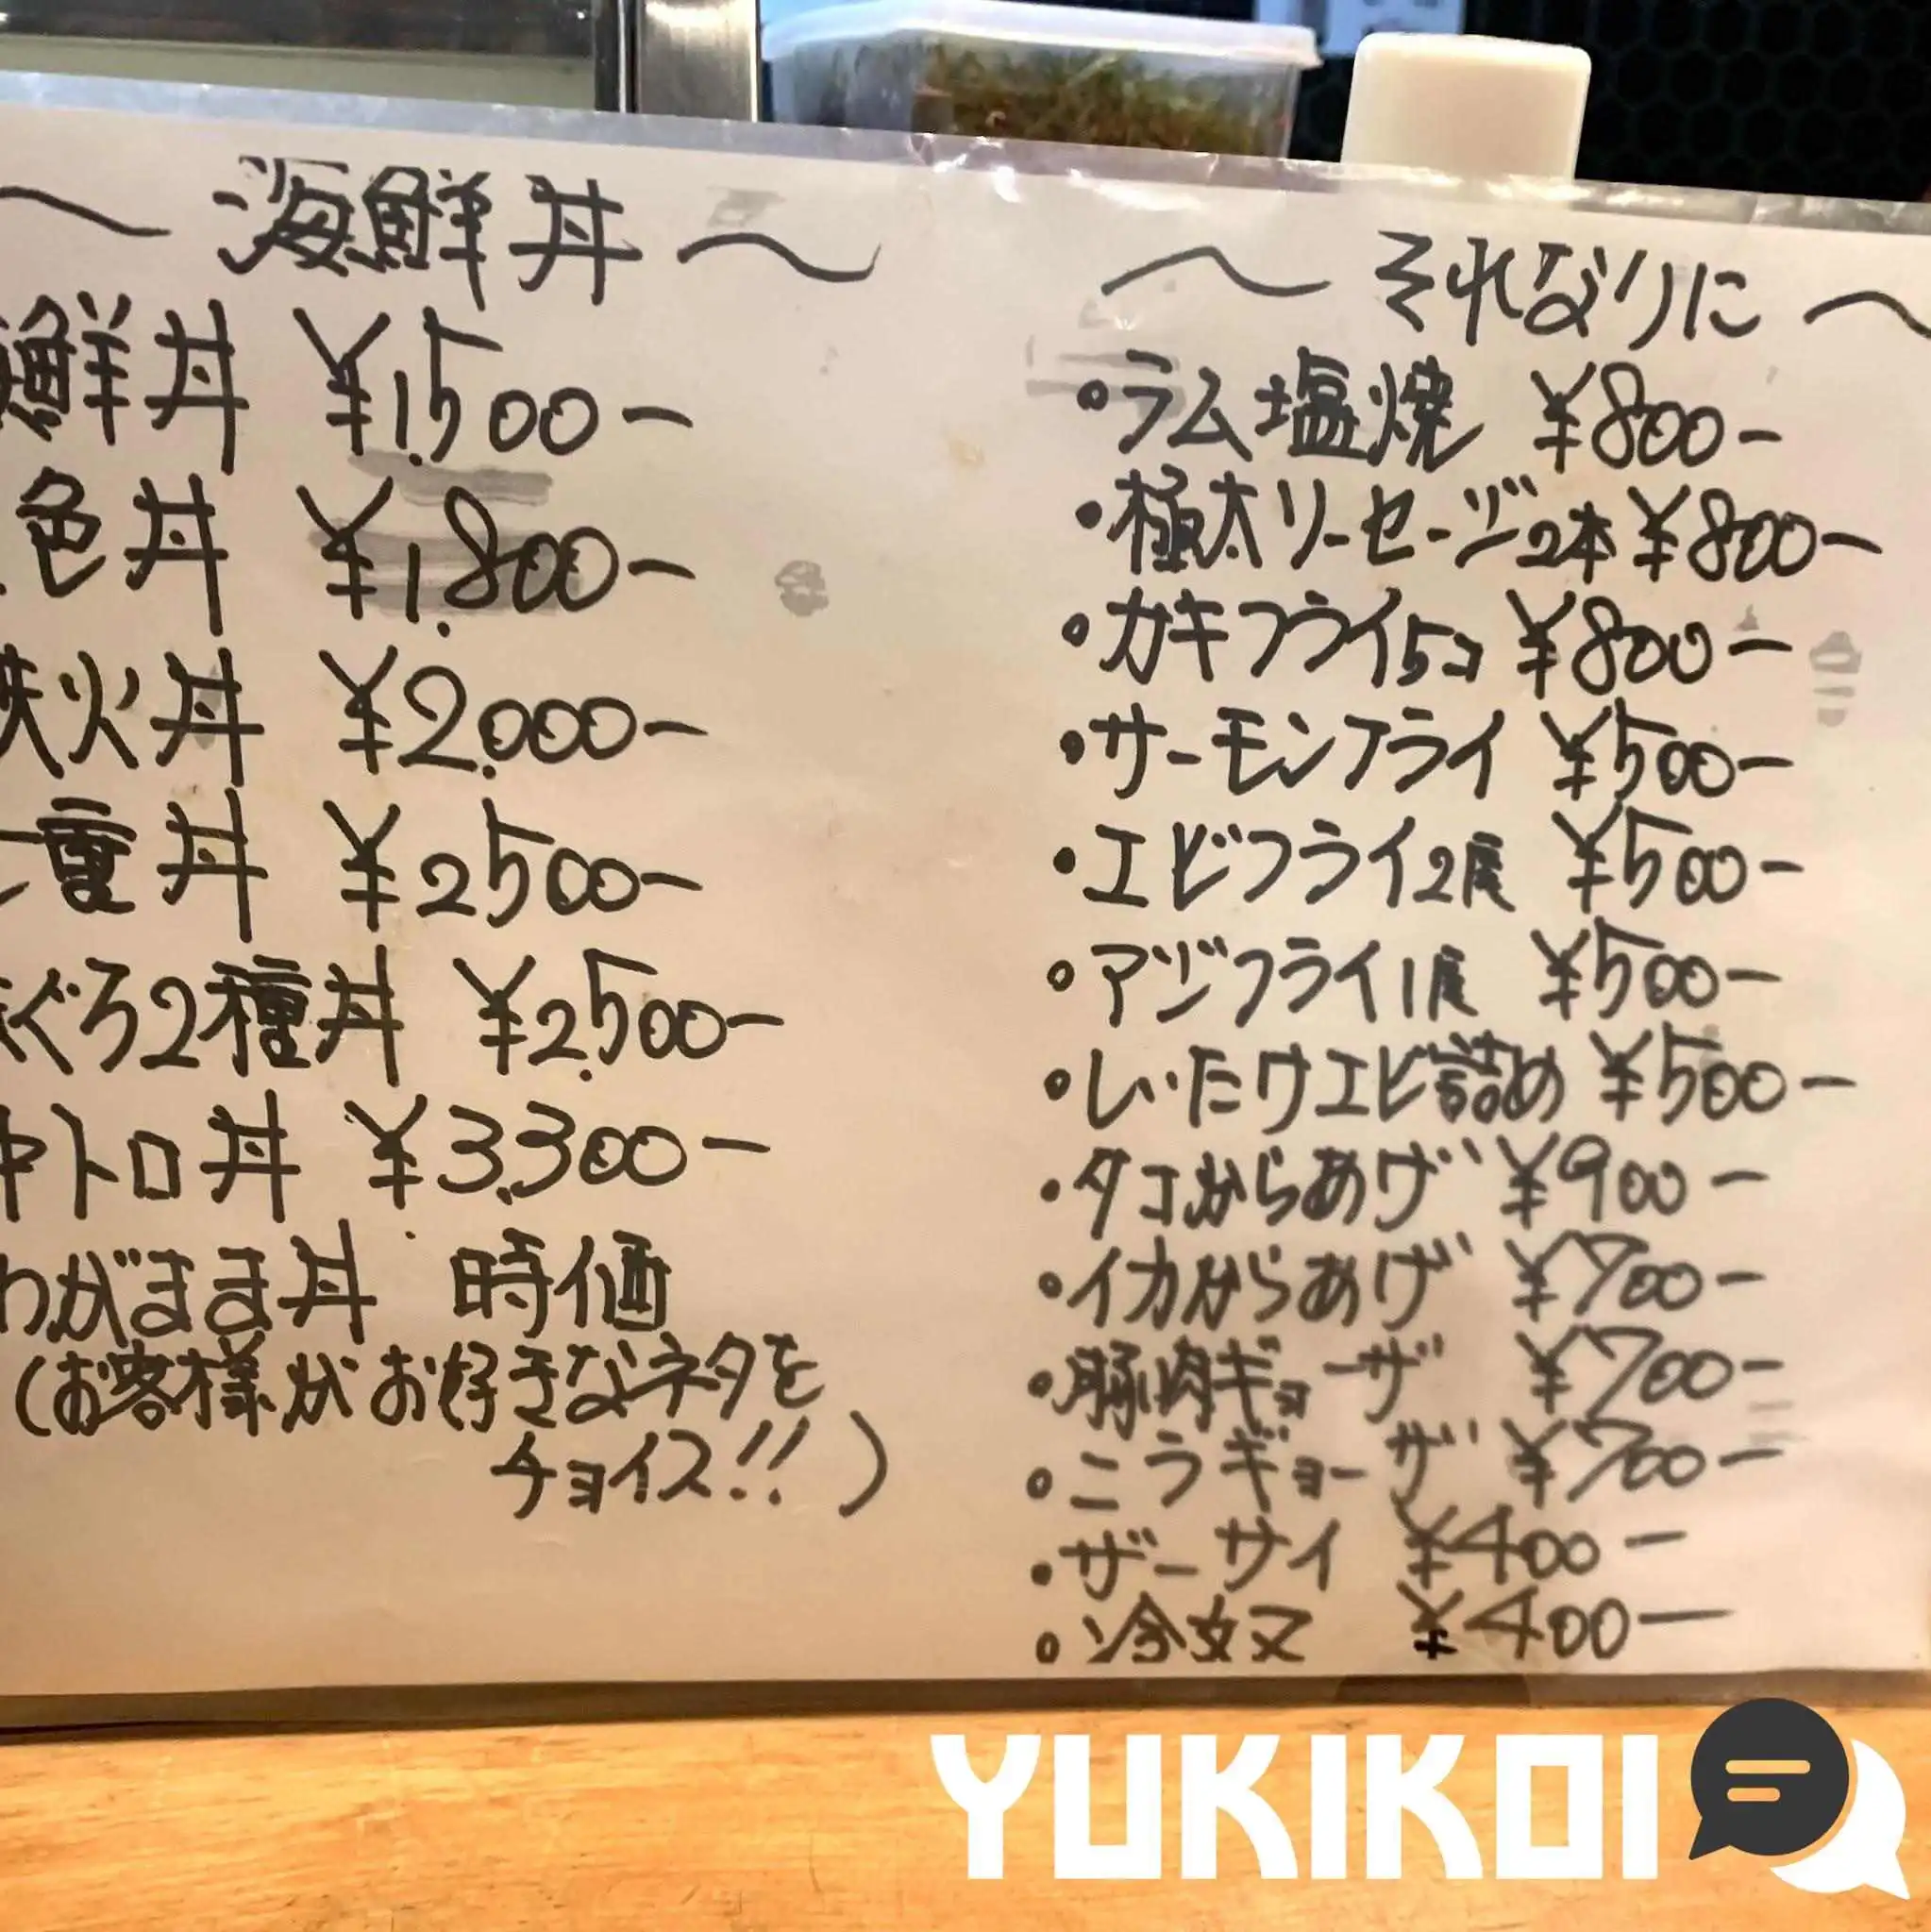 〜海鮮丼〜
鮮丼 ¥1,500ー
色丼 ¥1,800ー
鉄火丼 ¥2,000ー
重丼 ¥2,500ー
まぐろ2種丼 ¥2,500ー
中トロ丼 ¥3,300ー
わがまま丼 時価
(お客様がお好きなネタを
チョイス!!)
〜それなりに〜
・ラム塩焼 ¥800ー
・極太ソーセージ2本 ¥800ー
・カキフライ5コ ¥800ー
・サーモンフライ ¥500ー
・エビフライ2尾 ¥500ー
・アジフライ1尾 ¥500ー
・しいたけエビ詰め ¥500ー
・タコからあげ ¥900ー
・イカからあげ ¥700ー
・豚肉ギョーザ ¥700ー
・ニラギョーザ ¥700ー
・ザーサイ ¥400ー
・冷奴 ¥400ー
YUKIKOI